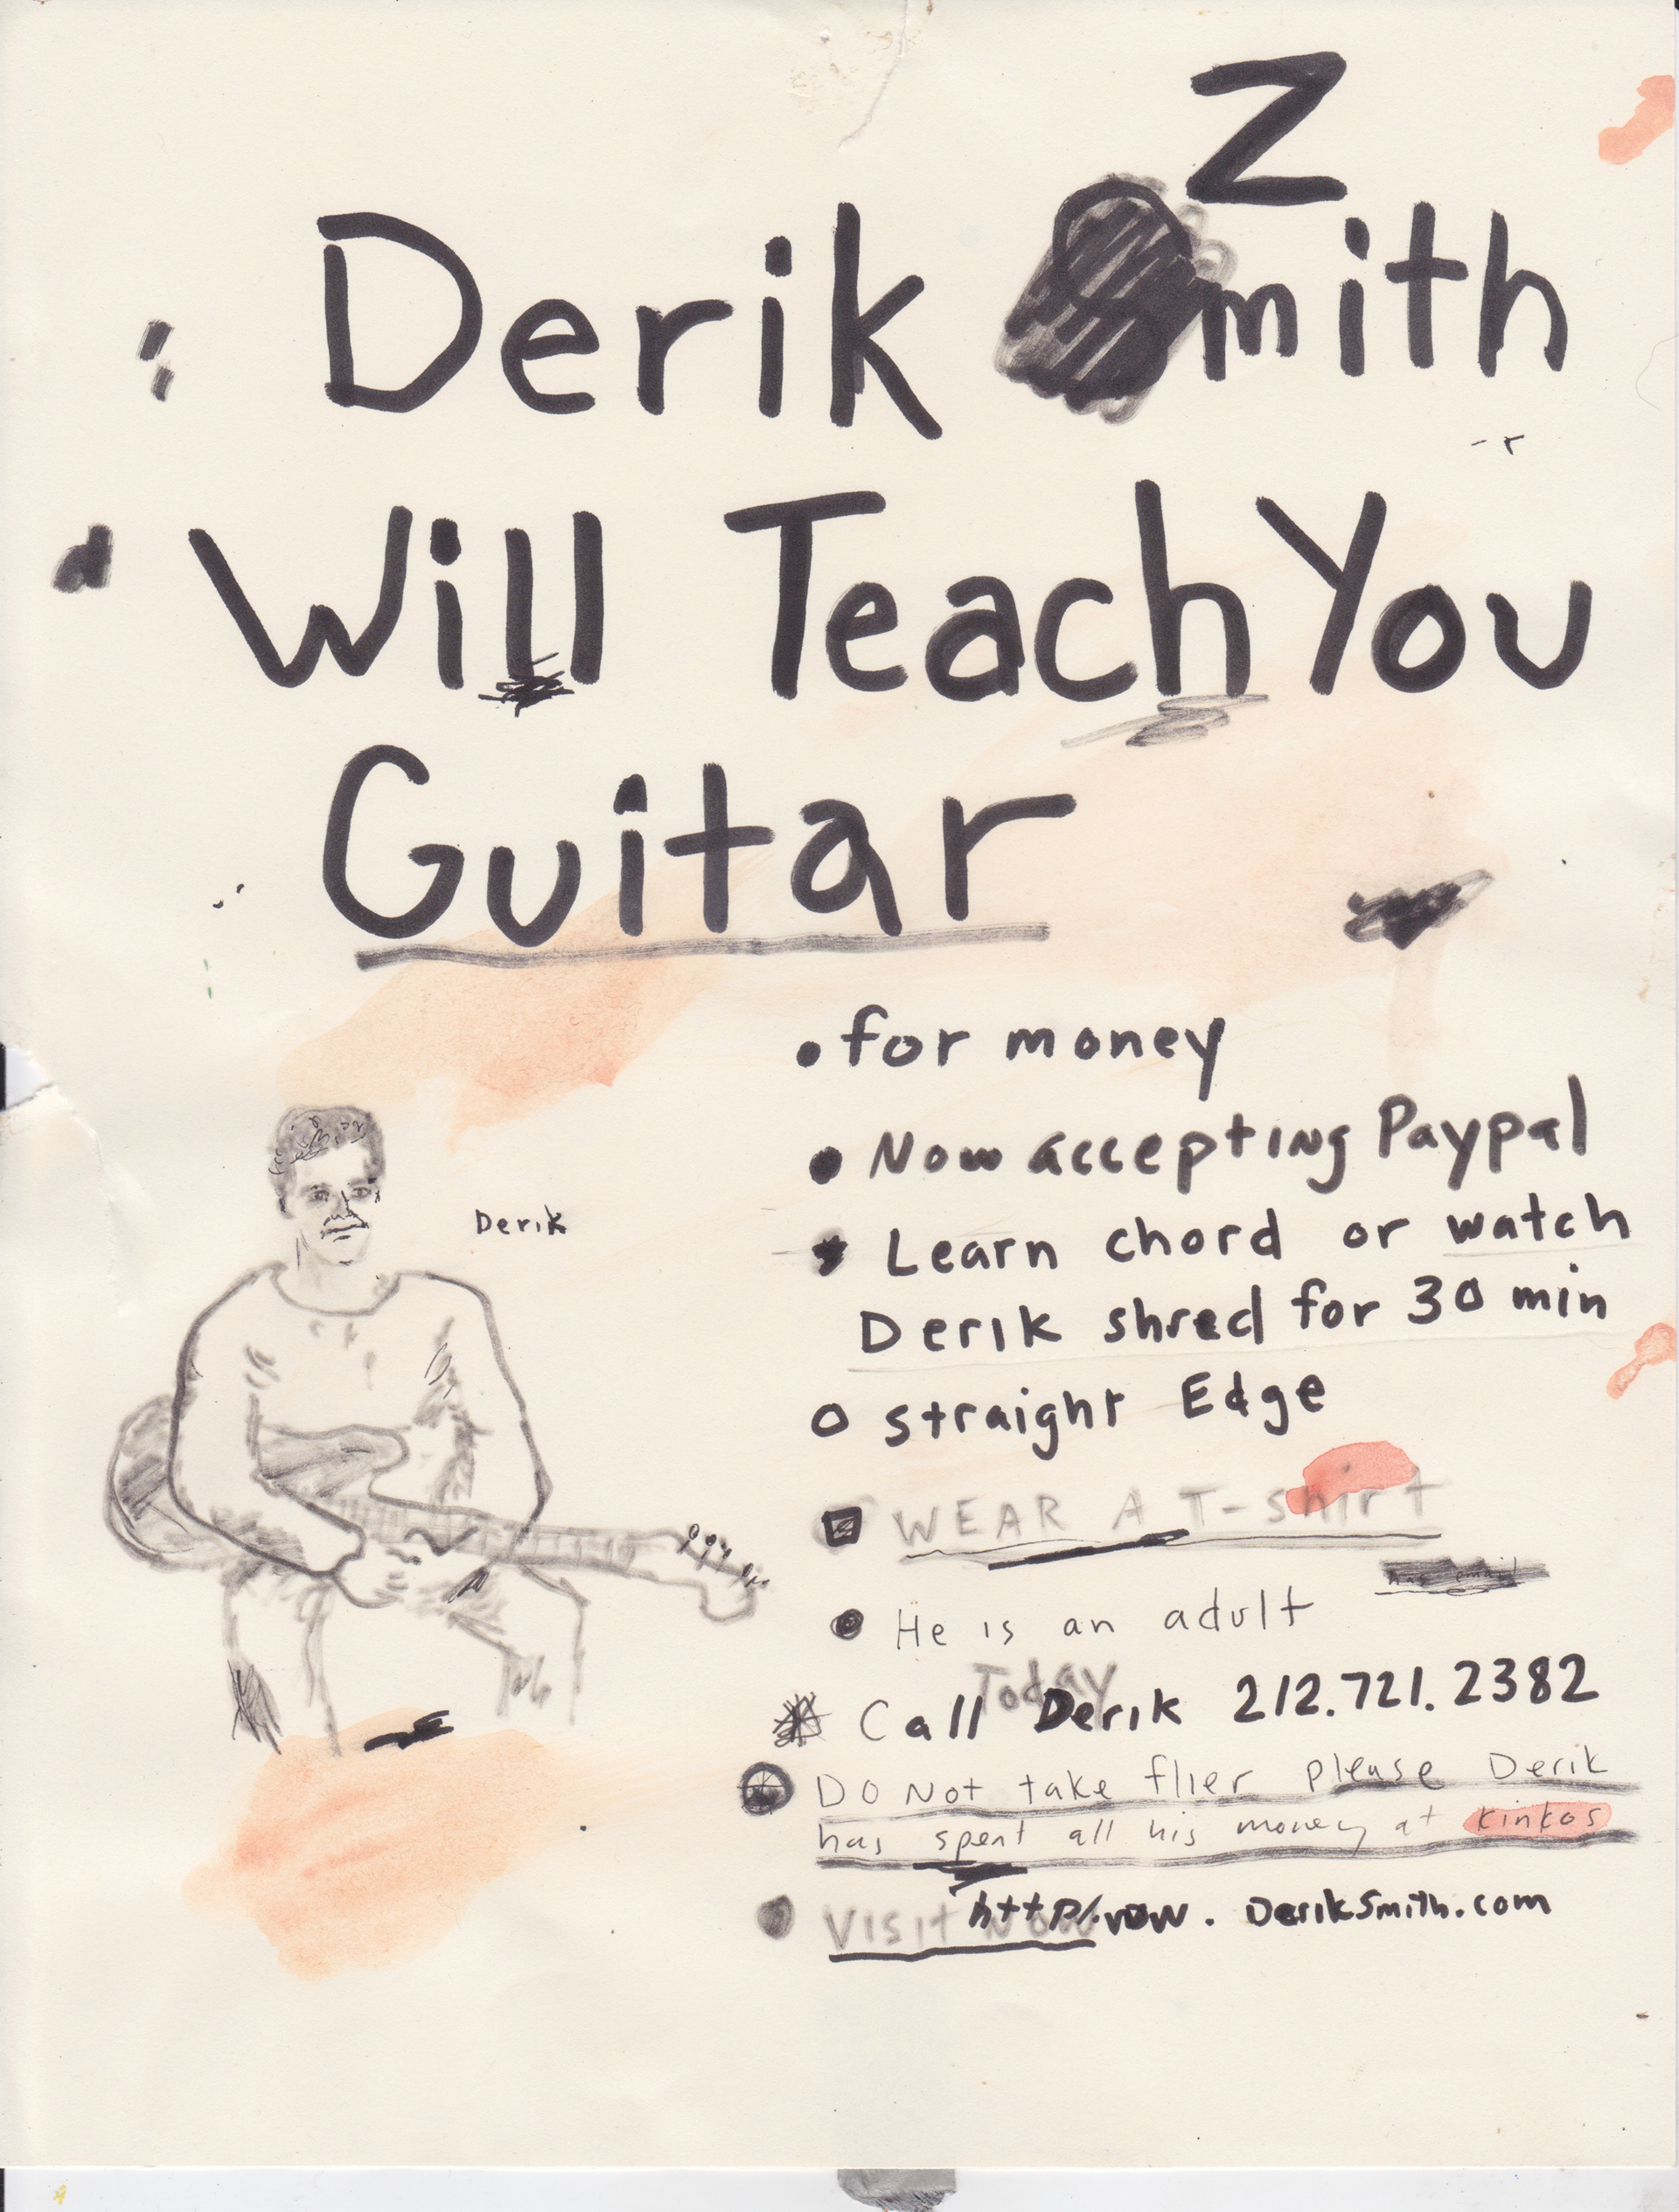 Z
Derik Smith
Will Teach You
Guitar
• for money
• Now accepting Paypal
Derik
• Learn chord or watch
Derik shred for 30 min
o straight Edge
WEAR A T-shirt
• He is an adult
Today
* Call Derik 212.721.2382
Do Not take flier please Derik
has spent all his money at kinkos
VISIT NOW
DerikSmith.com